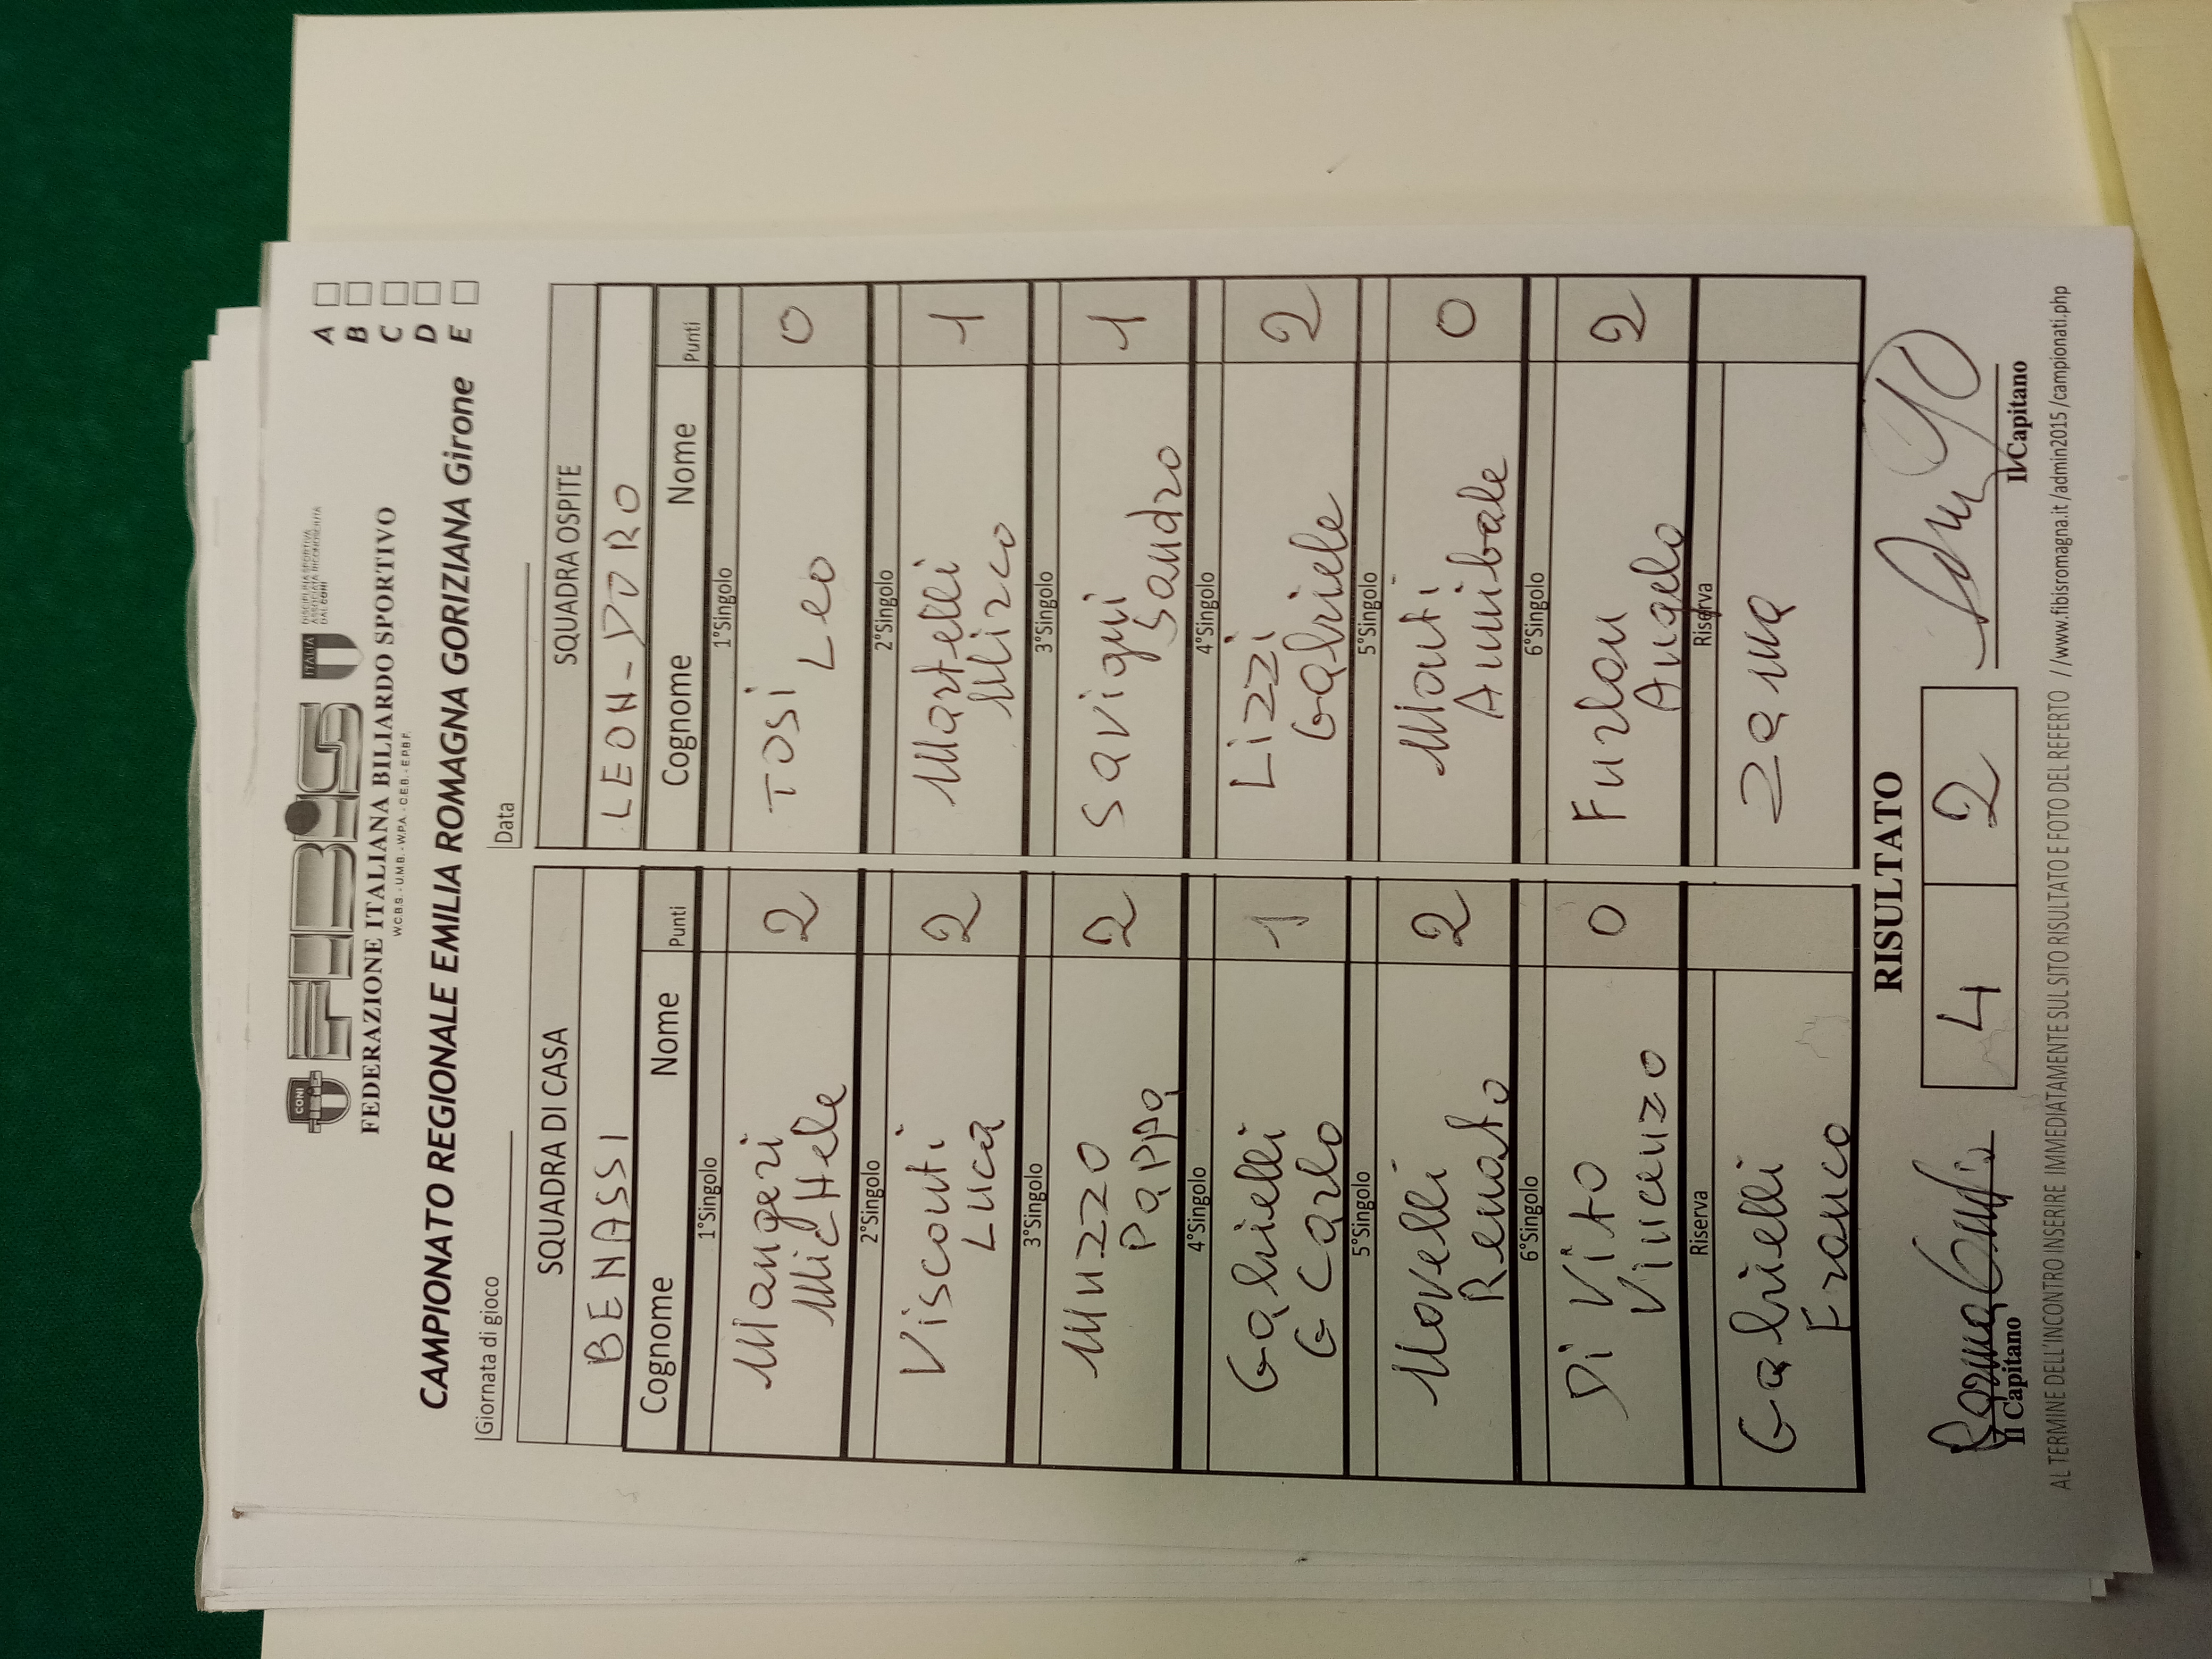 CONI
FIBiS
ITALIA
DISCIPLINA SPORTIVA
ASSOCIATA RICONOSCIUTA
DAL CONI
FEDERAZIONE ITALIANA BILIARDO SPORTIVO
W.C.B.S. - U.M.B. - W.P.A. - C.E.B. - E.P.B.F.
CAMPIONATO REGIONALE EMILIA ROMAGNA GORIZIANA Girone
A
B
C
D
E
Giornata di gioco
Data
SQUADRA DI CASA
BENASSI
Cognome Nome Punti
1°Singolo
Mangeri
Michele 2
2°Singolo
Visconti
Luca 2
3°Singolo
Muzzo
Pappa 2
4°Singolo
Gabrielli
G Carlo 1
5°Singolo
Novelli
Renato 2
6°Singolo
Di Vito
Vincenzo 0
Riserva
Gabrielli
Franco
SQUADRA OSPITE
LEON-DORO
Cognome Nome Punti
1°Singolo
TOSi
Leo 0
2°Singolo
Martelli
Mirco 1
3°Singolo
Savigni
Sandro 1
4°Singolo
Lizzi
Gabriele 2
5°Singolo
Monti
Annibale 0
6°Singolo
Furlan
Angelo 2
Riserva
Zama
RISULTATO
4 2
Il Capitano
Il Capitano
AL TERMINE DELL'INCONTRO INSERIRE IMMEDIATAMENTE SUL SITO RISULTATO E FOTO DEL REFERTO //www.fibisromagna.it/admin2015/campionati.php